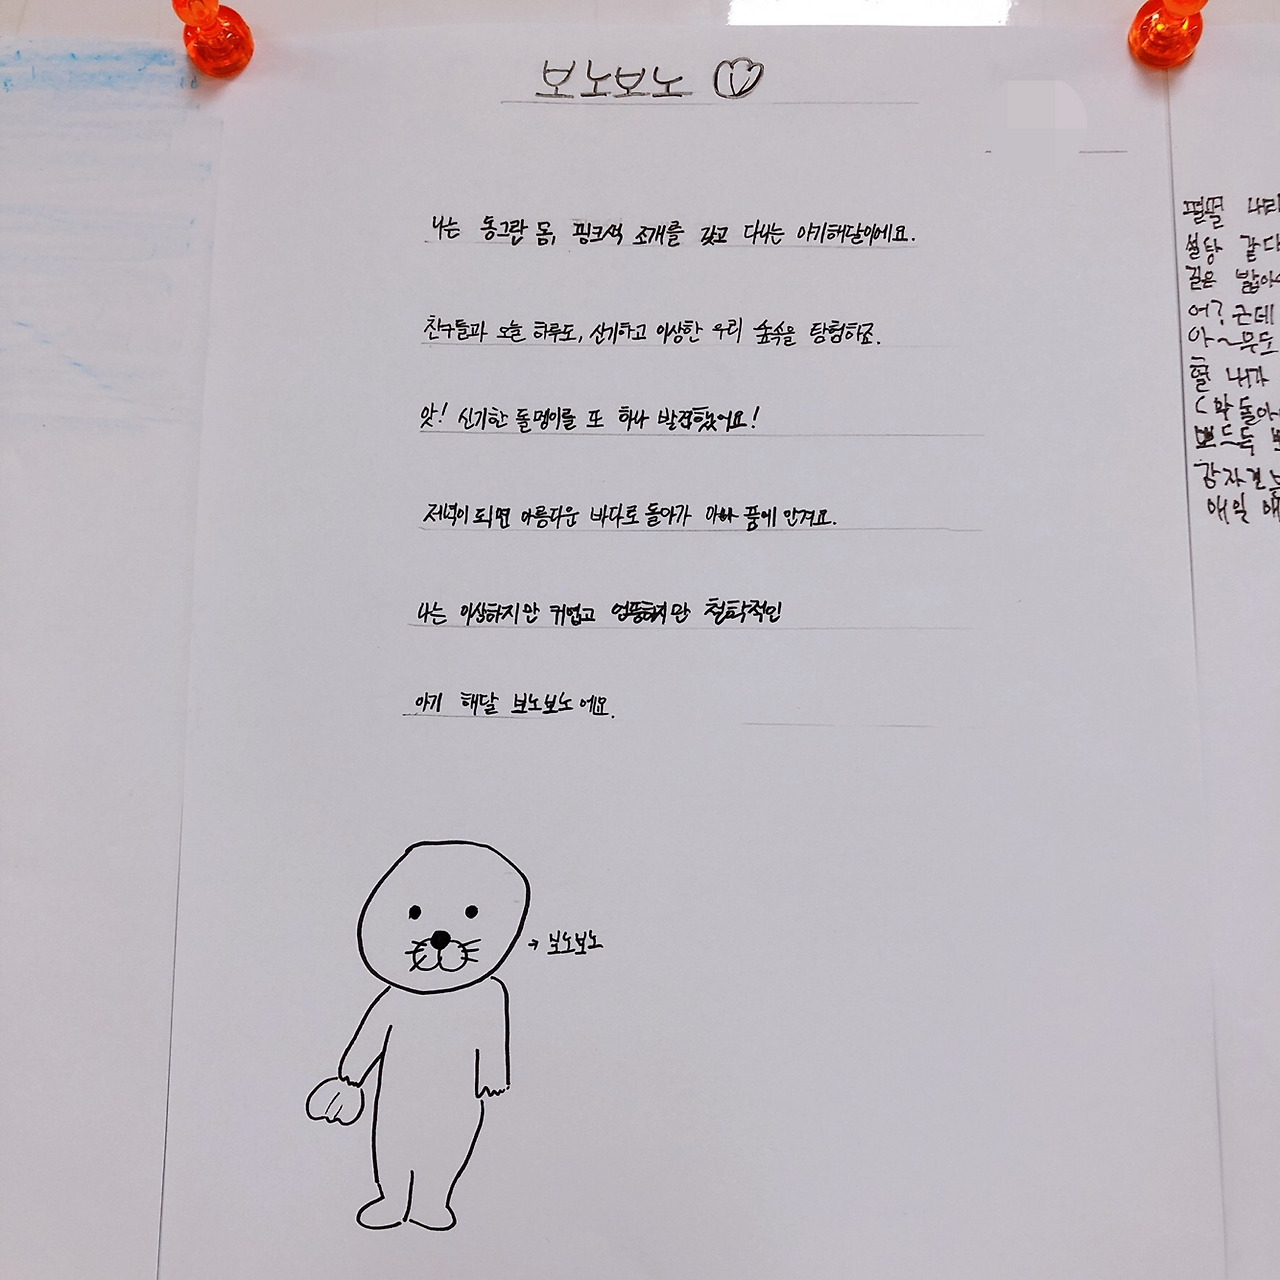 보노보노
나는 동그란 몸, 핑크색 조개를 갖고 다니는 아기해달이에요.
친구들과 오늘 하루도, 신기하고 이상한 우리 숲속을 탐험하죠.
앗! 신기한 돌멩이를 또 하나 발견했어요!
저녁이 되면 아름다운 바다로 돌아가 아빠 품에 안겨요.
나는 이상하지만 귀엽고 엉뚱하지만 철학적인
아기 해달 보노보노에요.
→ 보노보노
펄펄 내리
설탕 같다
길은 밟아
어? 근데
아~무도
헐 내가
뽀드득
매일